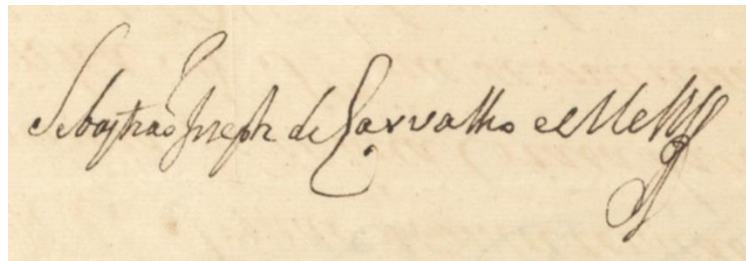 Sebastiaõ Joseph de Carvalho e Mello